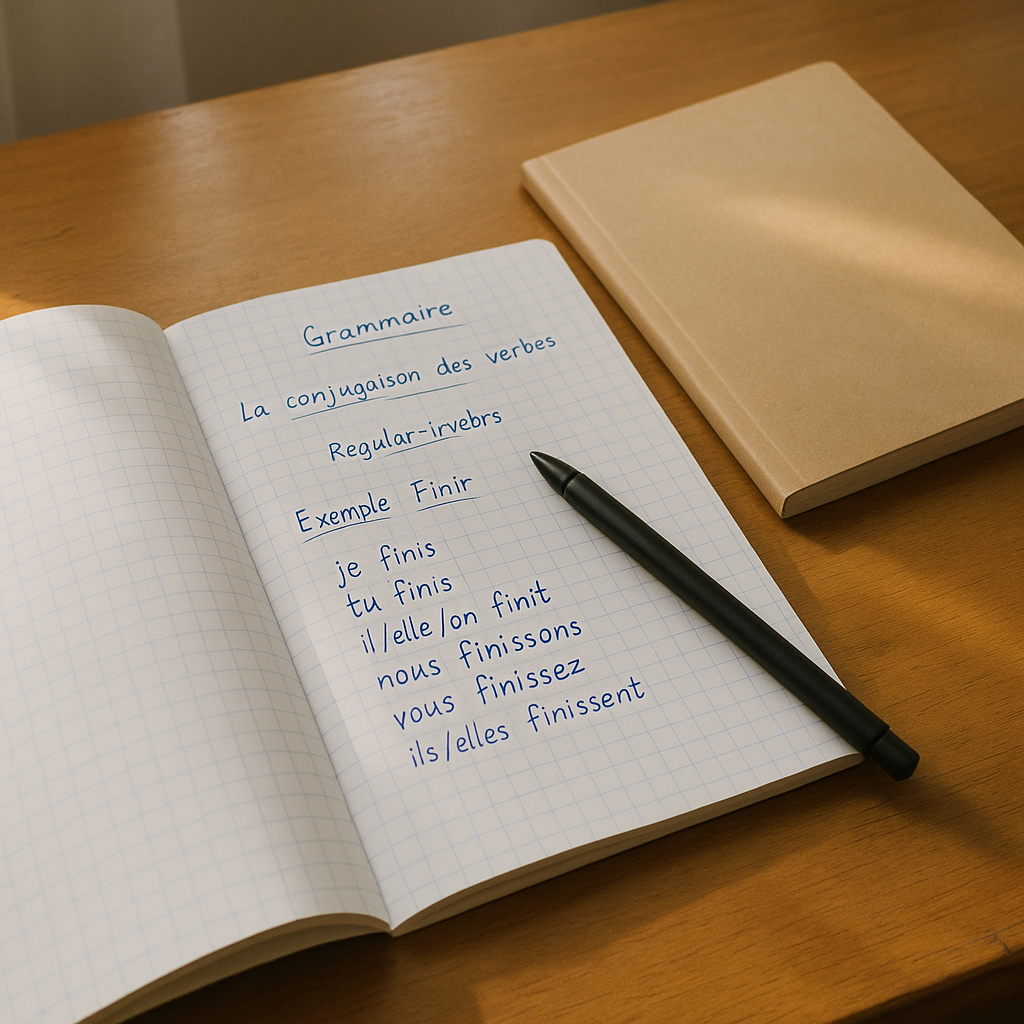 Grammaire
La conjugaison des verbes
Regular-irvebrs
Exemple Finir
je finis
tu finis
il/elle/on finit
nous finissons
vous finissez
ils/elles finissent